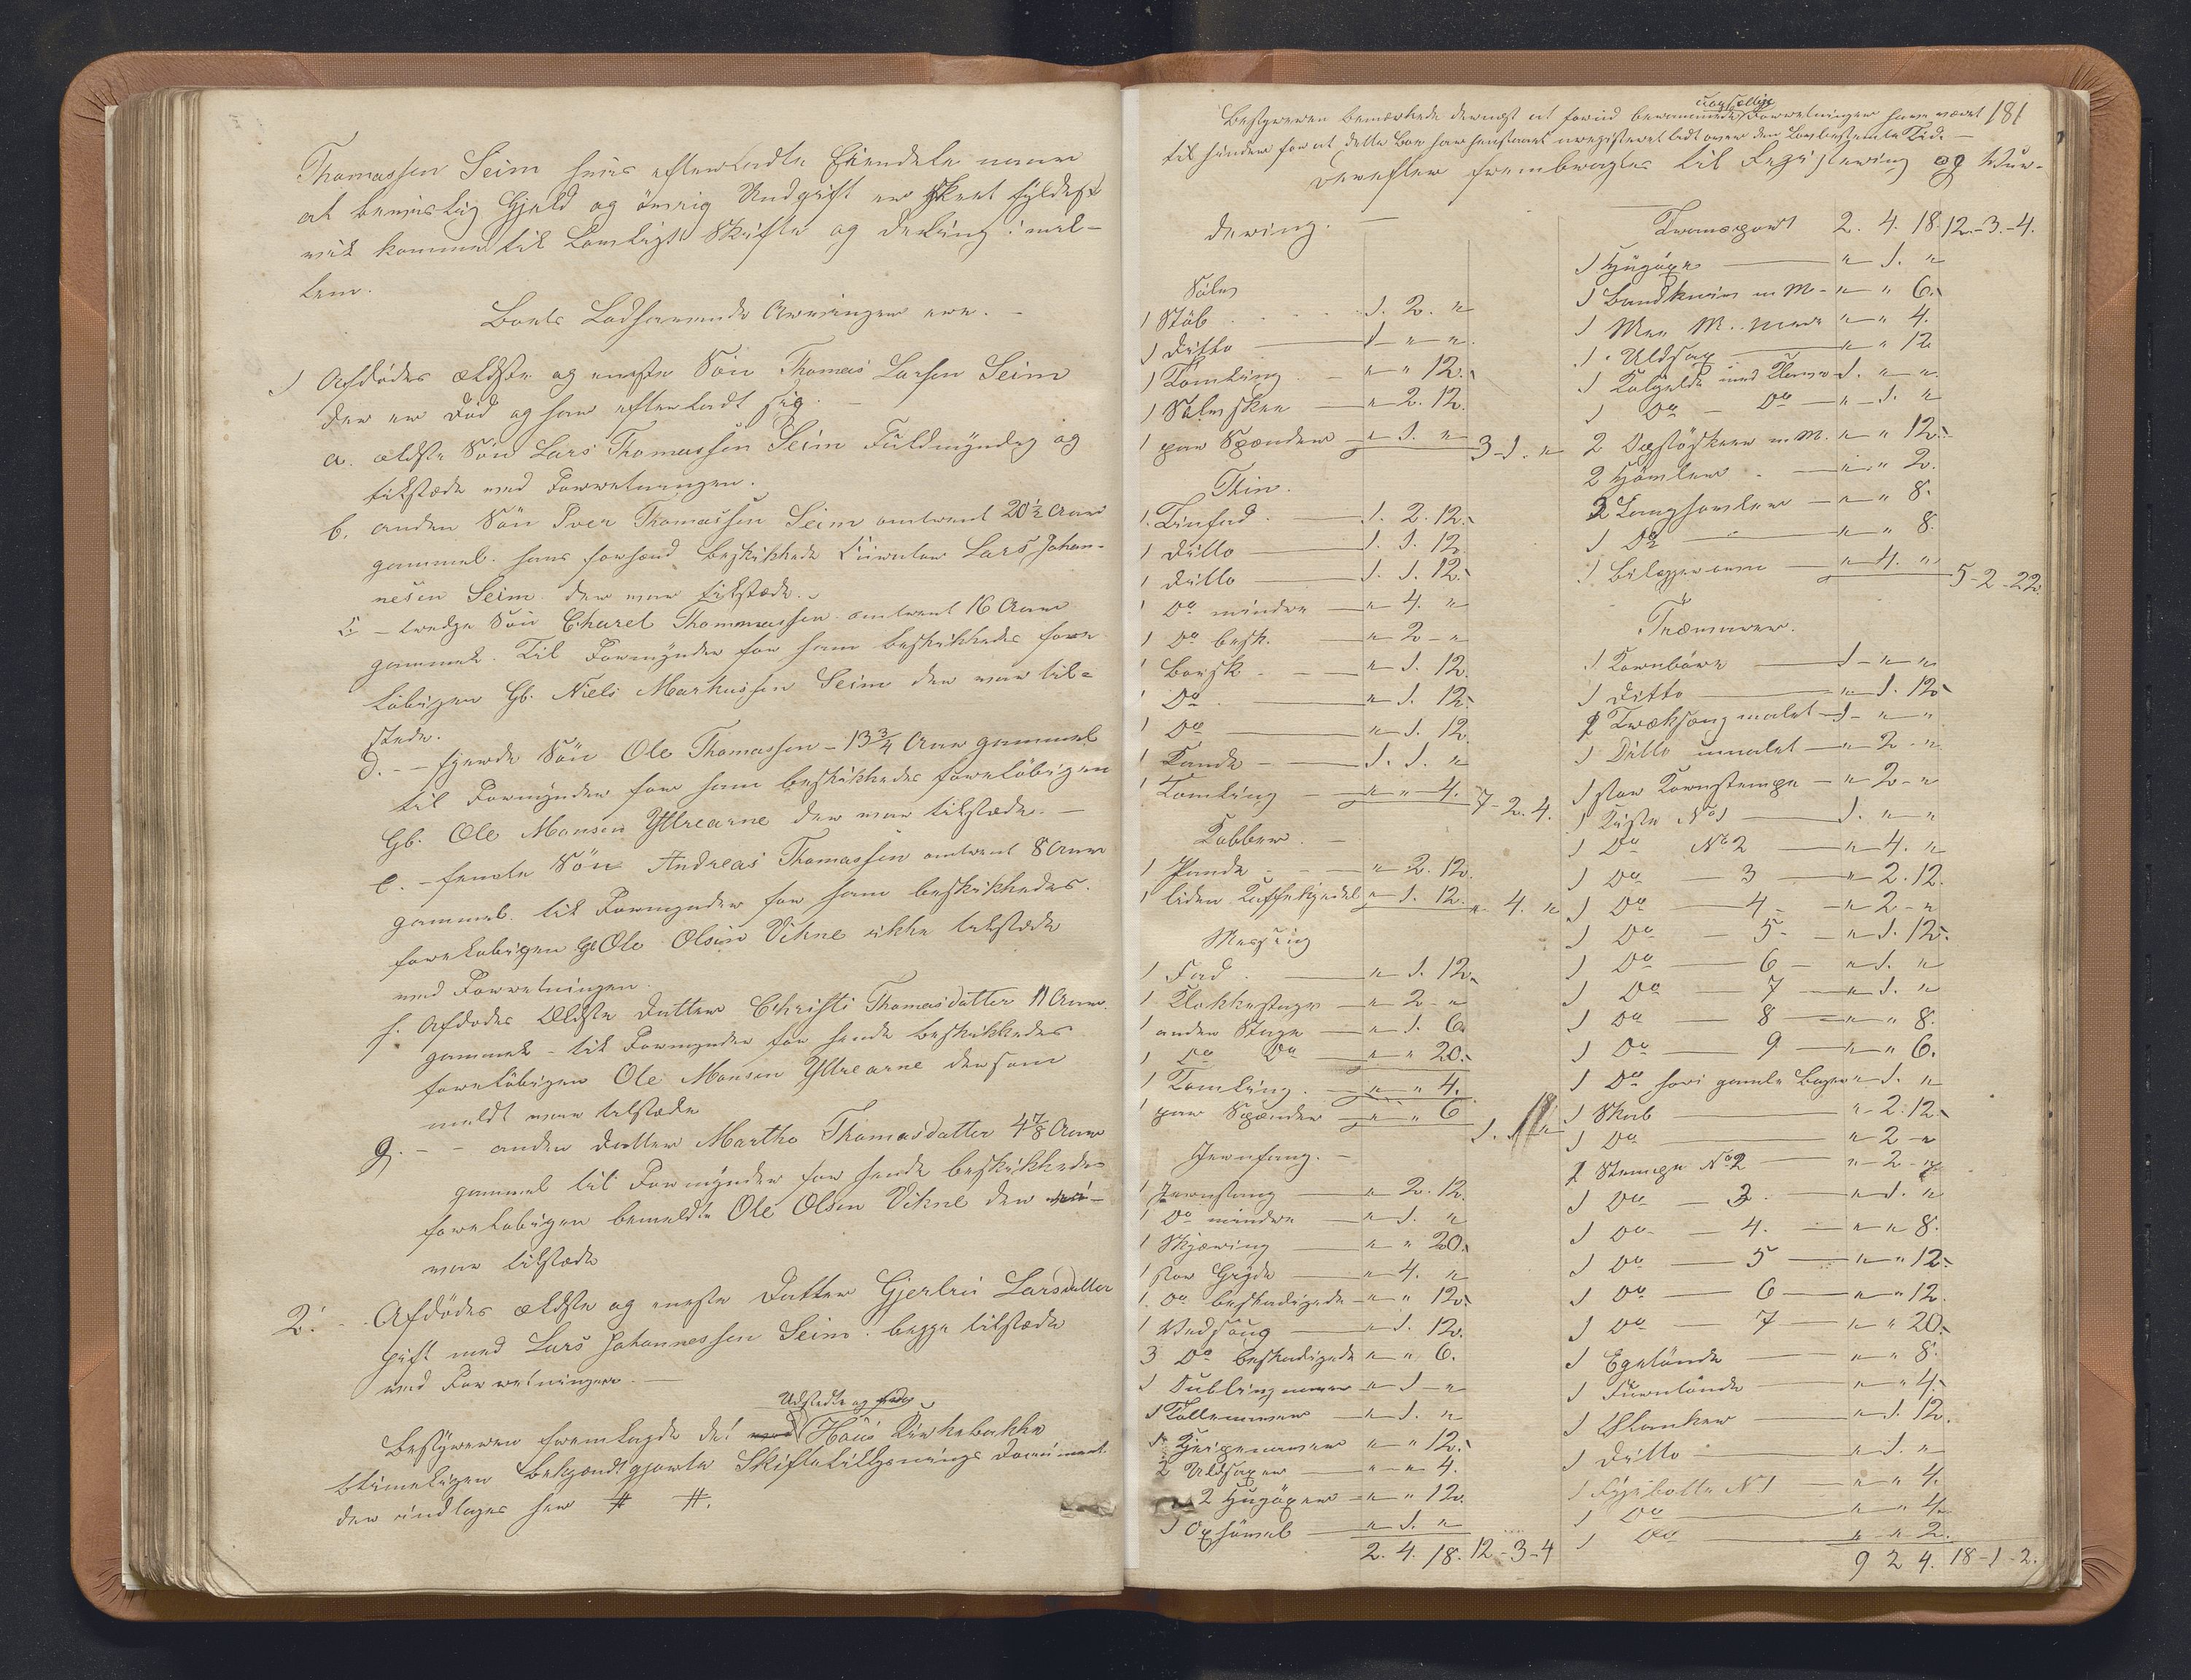 Thomassen Seim hvis efterladte Eiendele naar
at beviislig Gjeld og øvrig Udgift er skeet fyldest
vil komme til Lovligt Skifte og Deeling imel-
lem.
Boets Lodhavende Arvinger ere. -
1 Afdødes ældste og eneste Søn Thomas Larsen Seim
der er Død og har efterladt sig. -
a. ældste Søn Lars Thomassen Seim Fuldmyndig og
tilstæde ved Forretningen.
b. anden Søn Iver Thomassen Seim omtrent 20½ Aar
gammel. hans forhend beskikkede Curator Lars Johan-
nesen Seim der var tilstæde.
c - tredje Søn Charel Thommassen omtrent 16 Aar
gammel. Til Formynder for ham beskikkedes fore
løbigen Gb. Niels Markussen Seim der var til-
stede.
d. - - fjerde Søn Ole Thomassen - 13¾ Aar gammel
til Formynder for ham beskikkedes foreløbigen
Gb. Ole Monsen Yttrearne der var tilstæde. -
e. - femte Søn Andreas Thomassen omtrent 8 Aar
gammel. til Formynder for ham beskikkedes.
foreløbigen Gb Ole Olsen Vikne ikke tilstæde
ved Forretningen.
f. Afdødes Ældste Datter Christi Thomasdatter 11 Aar
gammel - til Formynder for hende beskikkedes
foreløbigen Ole Monsen Yttrearne der som
meldt var tilstæde
g. - - anden Datter Martha Thomasdatter 4⅞ Aar
gammel til Formynder for hende beskikkedes
foreløbigen bemeldte Ole Olsen Vikne der ei
var tilstæde
2. - Afdødes ældste og eneste Datter Gjertrui Larsdatter
gift med Lars Johannessen Seim. begge tilstæde
ved Forretningen. -
Udstedte og
Bestyreren fremlagde det Hous Kirkebakke
betimeligen Bekjendtgjorte Skiftetillysnings Document
der indtages her # #.
181
uopsættlige
Bestyreren bemærkede dernæst at forud berammede Forretninger have været
til hinder for at dette Boe har henstaaet uregisteret lidt over den Lovbestemte Tid. -
Derefter frembragtes til Registering og Vur-
dering. -
Sølv
1 Støb - 1. 2. "
1 Ditto - 1 - " "
1 Tømling - " " 12.
1 Sølvskee - " 2. 12.
1 par Spænder - " 1. " 3-1. "
Thin.
1. Tinfad - 1. 2. 12.
1 Ditto - 1. 1. 12.
1 Ditto - 1. 1. 12.
1 Do mindre - " 4. "
1 Do besk. - " 2 - "
1 Borsk - " 1. 12.
1 Do - " 1. 12.
1 Do - " 1. 12.
1 Kande - 1. 1. "
1 Tømling - " " 4. 7-2.4.
Kobber. -
1 Pande - " 2. 12.
1 liden Kaffekjedel " 1. 12. " 4. "
Messing
1 Fad - " 1. 12.
1 Klokkestage - " 2 - "
1 anden Stage - " 1. 6
1 Do Do - " " 20.
1 Tømling - " " 4.
1 par Spænder - " " 6
Jernfang. -
1 Jernstang - " 2. 12.
1 Do mindre - " 1. "
1 Skjæring - " " 20.
1 stor Gryde - " 4. "
1. Do beskadigede - " " 12.
1 Vedsaug - " 1. 12.
3 Do beskadigede " " 6.
1 Dublingnaver - " 1 - "
1 Tollenaver - " 1. "
- " " 12.
2 Uldsaxer - " " 4.
2 Hugøxer - " " 12.
1 Oxhøvel - " 1. "
2. 4. 18. 12-3-4
Transport 2. 4. 18. 12-3.-4.
1 Hugøxe - " 1. "
1 Baandkniv m M - " " 6.
1 " " 4.
1. Uldsax - " " 12
1 1. " "
1 Do - Do - " 1. "
2 m M. " " 12.
2 Høvler - " " 2.
2 Langhøvler - " " 8.
1 Do - " " 8.
1 Bilæggerovn - " 4. " 5-2-22.
Trævarer.
1 Kornbøre - 1 - " "
1 Ditto - " 1. 12.
1 Træksæng malet - 1 - " "
1 Ditto umalet - " 2 - "
1 stor Kornstampe - " 2 - "
1 Kiste No 1 - 1. " "
1 Do No 2 - " 4. "
1 Do - 3 - " 2. 12.
1 Do - 4 - " 2 - "
1 Do - 5 - " 1. 12.
1 Do - 6 - " 1. "
1 Do - 7 - " 1. "
1 Do - 8 - " " 8.
1 Do - 9 - " " 6.
1 Do hvori gamle Bøger " 1. "
1 Skab - " 2. 12.
1 Do - " 2 - "
1 Stampe No 2 - " 2 - "
1 Do - 3. - " 1. "
1 Do - 4. - " " 8.
1 Do - 5 - " " 12.
1 Do - 6 - " " 12.
1 Do - 7 - " " 20.
1 Egetønde - " " 8.
1 Furutønde - " " 4.
1 - " 1. 12.
1 Ditto - " 1. "
1 No 1 - " " 4.
1 Do - " " 4.
1 Do " " 2.
9 2 4. 18-1-2.